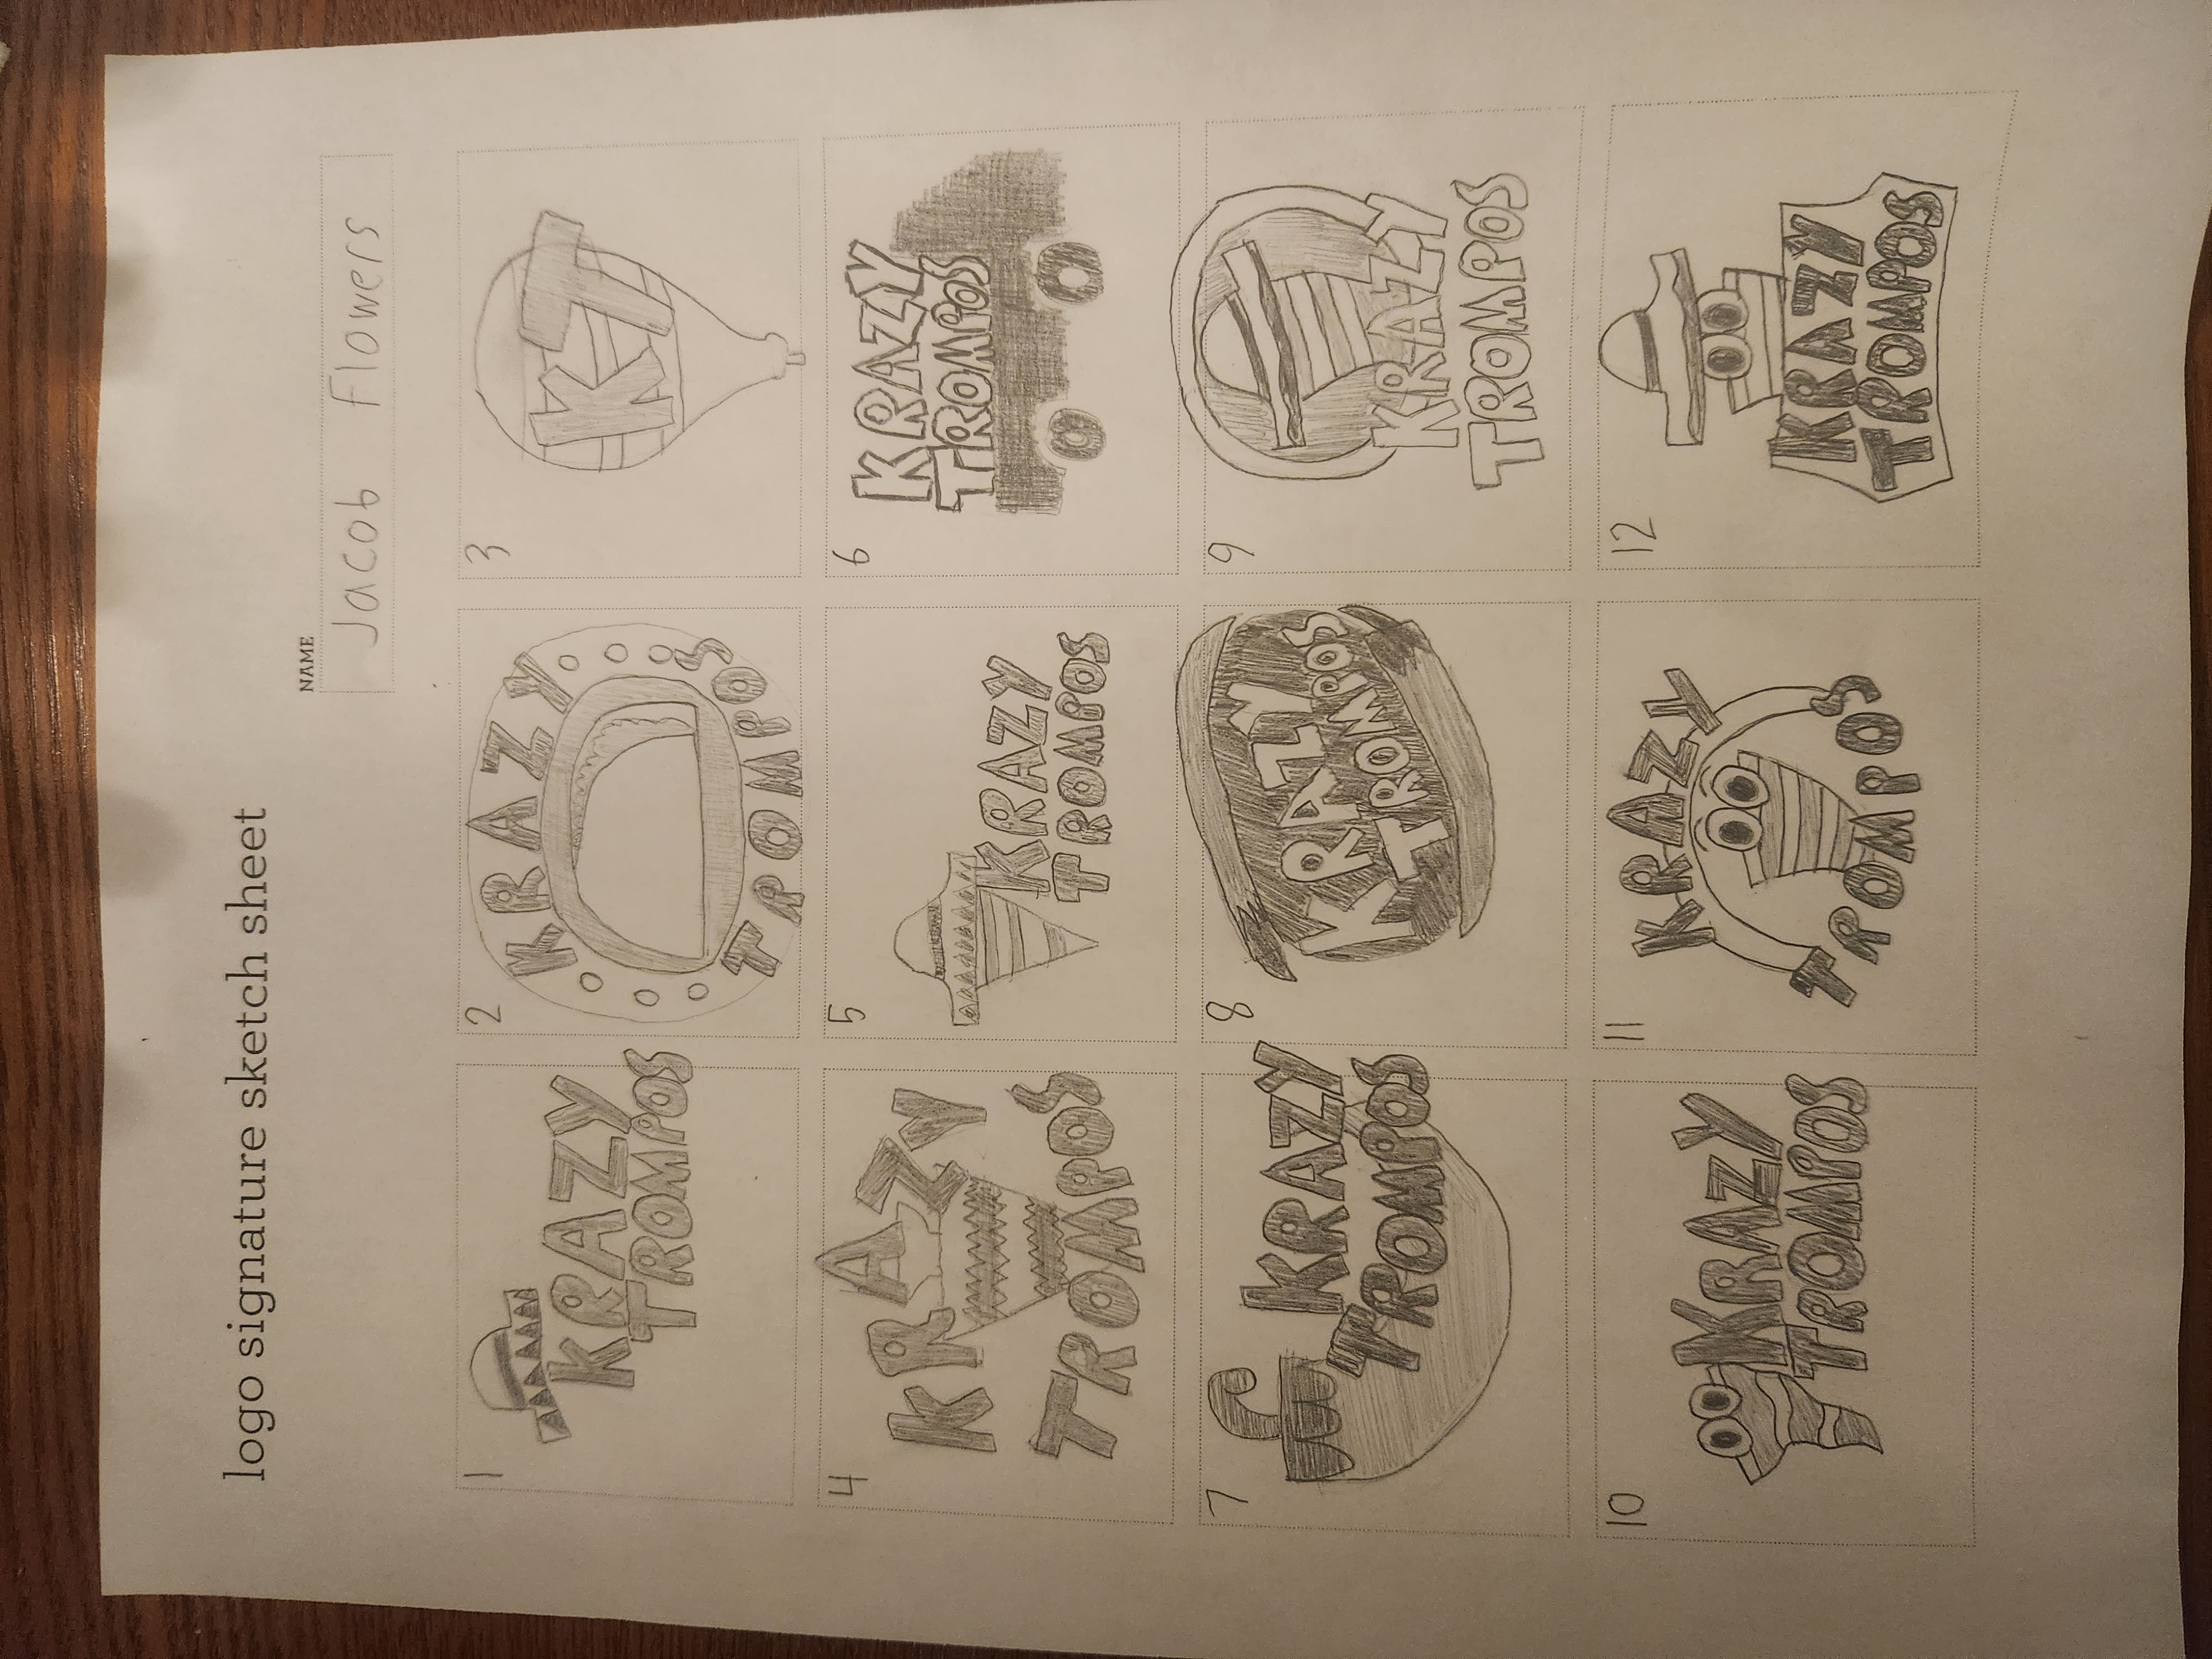 logo signature sketch sheet
NAME
Jacob Flowers
1
KRAZY
TROMPOS
2
KRAZY
TROMPOS
3
KT
4
KRAZY
TROMPOS
5
KRAZY
TROMPOS
6
KRAZY
TROMPOS
7
KRAZY
TROMPOS
8
KRAZY
TROMPOS
9
KRAZY
TROMPOS
10
KRAZY
TROMPOS
11
KRAZY
TROMPOS
12
KRAZY
TROMPOS